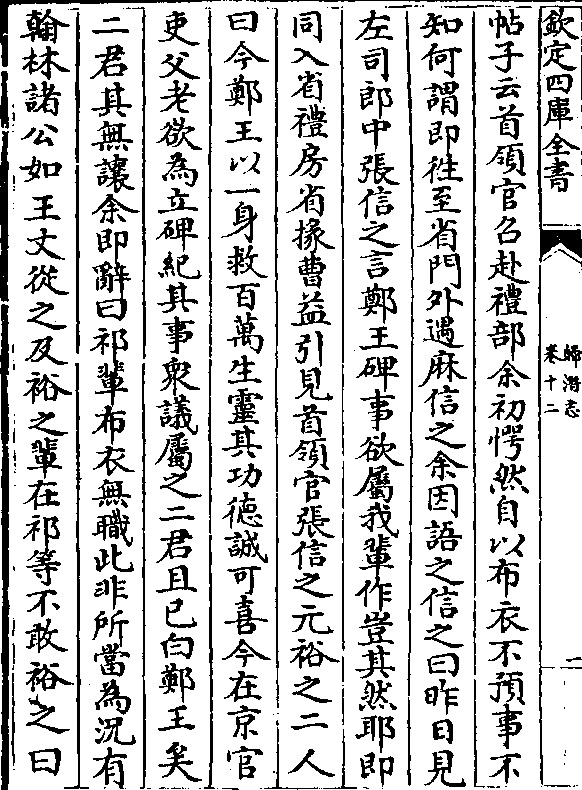 欽定四庫全書
歸潛志
卷十二
二
帖子云首領官召赴禮部余初愕然自以布衣不預事不
知何謂即徃至省門外遇麻信之余因語之信之曰昨日見
左司郎中張信之言鄭王碑事欲屬我輩作豈其然耶即
同入省禮房省掾曹益引見首領官張信之元裕之二人
曰今鄭王以一身救百萬生靈其功德誠可喜今在京官
吏父老欲為立碑紀其事衆議屬之二君且已白鄭王矣
二君其無讓余即辭曰祁輩布衣無職此非所當為況有
翰林諸公如王丈從之及裕之輩在祁等不敢裕之曰